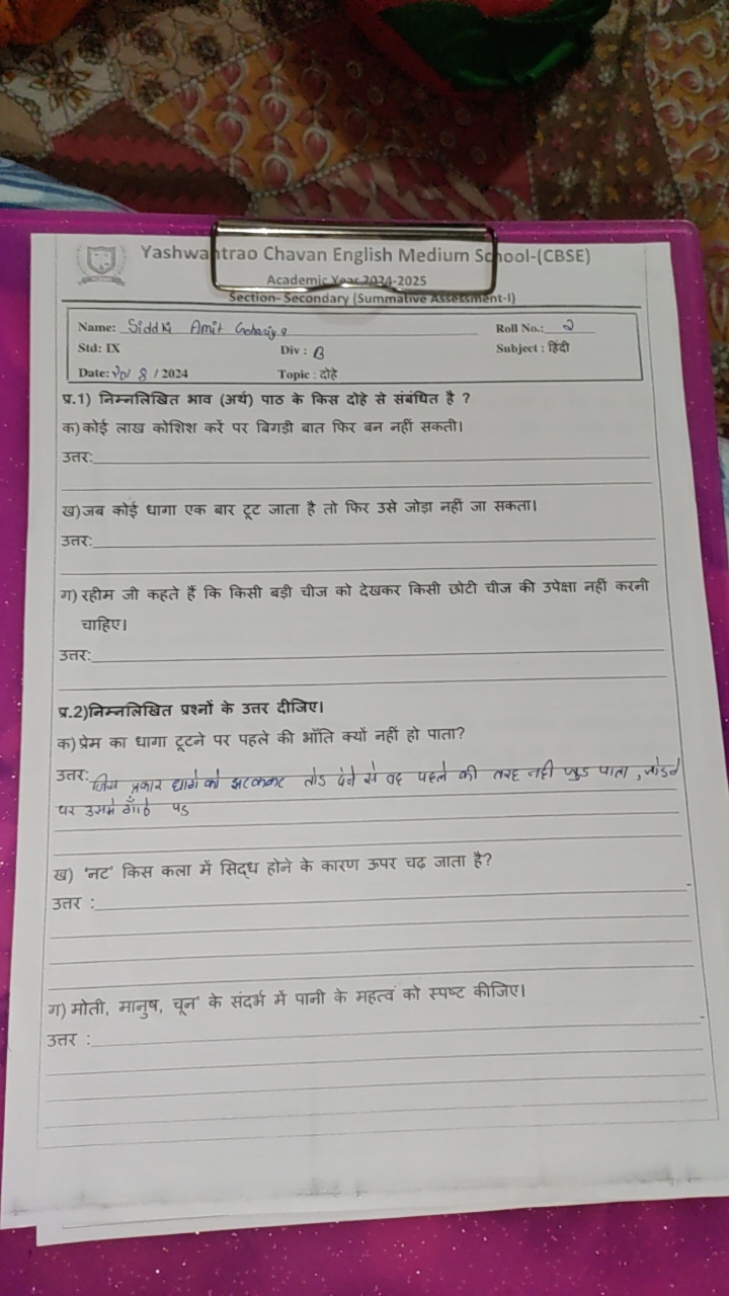 Yashwantrao Chavan English Medium School-(CBSE)
Academic Year 2024-2025
Section- Secondary (Summative Assessment-I)
Name: Siddhi Amit
Roll No.: 2
Std: IX
Div : B
Subject : हिंदी
Date: 20/ 8 / 2024
Topic : दोहे
प्र.1) निम्नलिखित भाव (अर्थ) पाठ के किस दोहे से संबंधित है ?
क) कोई लाख कोशिश करें पर बिगड़ी बात फिर बन नहीं सकती।
उत्तर:
ख)जब कोई धागा एक बार टूट जाता है तो फिर उसे जोड़ा नहीं जा सकता।
उत्तर:
ग) रहीम जी कहते हैं कि किसी बड़ी चीज को देखकर किसी छोटी चीज की उपेक्षा नहीं करनी
चाहिए।
उत्तर:
प्र.2)निम्नलिखित प्रश्नों के उत्तर दीजिए।
क) प्रेम का धागा टूटने पर पहले की भाँति क्यों नहीं हो पाता?
उत्तर: जिस प्रकार धागे को झटककर तोड देने से वह पहले की तरह नही जुड पाता , जोडने
पर उसमे गाँठ पड
ख) 'नट' किस कला में सिद्ध होने के कारण ऊपर चढ़ जाता है?
उत्तर :
ग) मोती, मानुष, चून' के संदर्भ में पानी के महत्व को स्पष्ट कीजिए।
उत्तर :